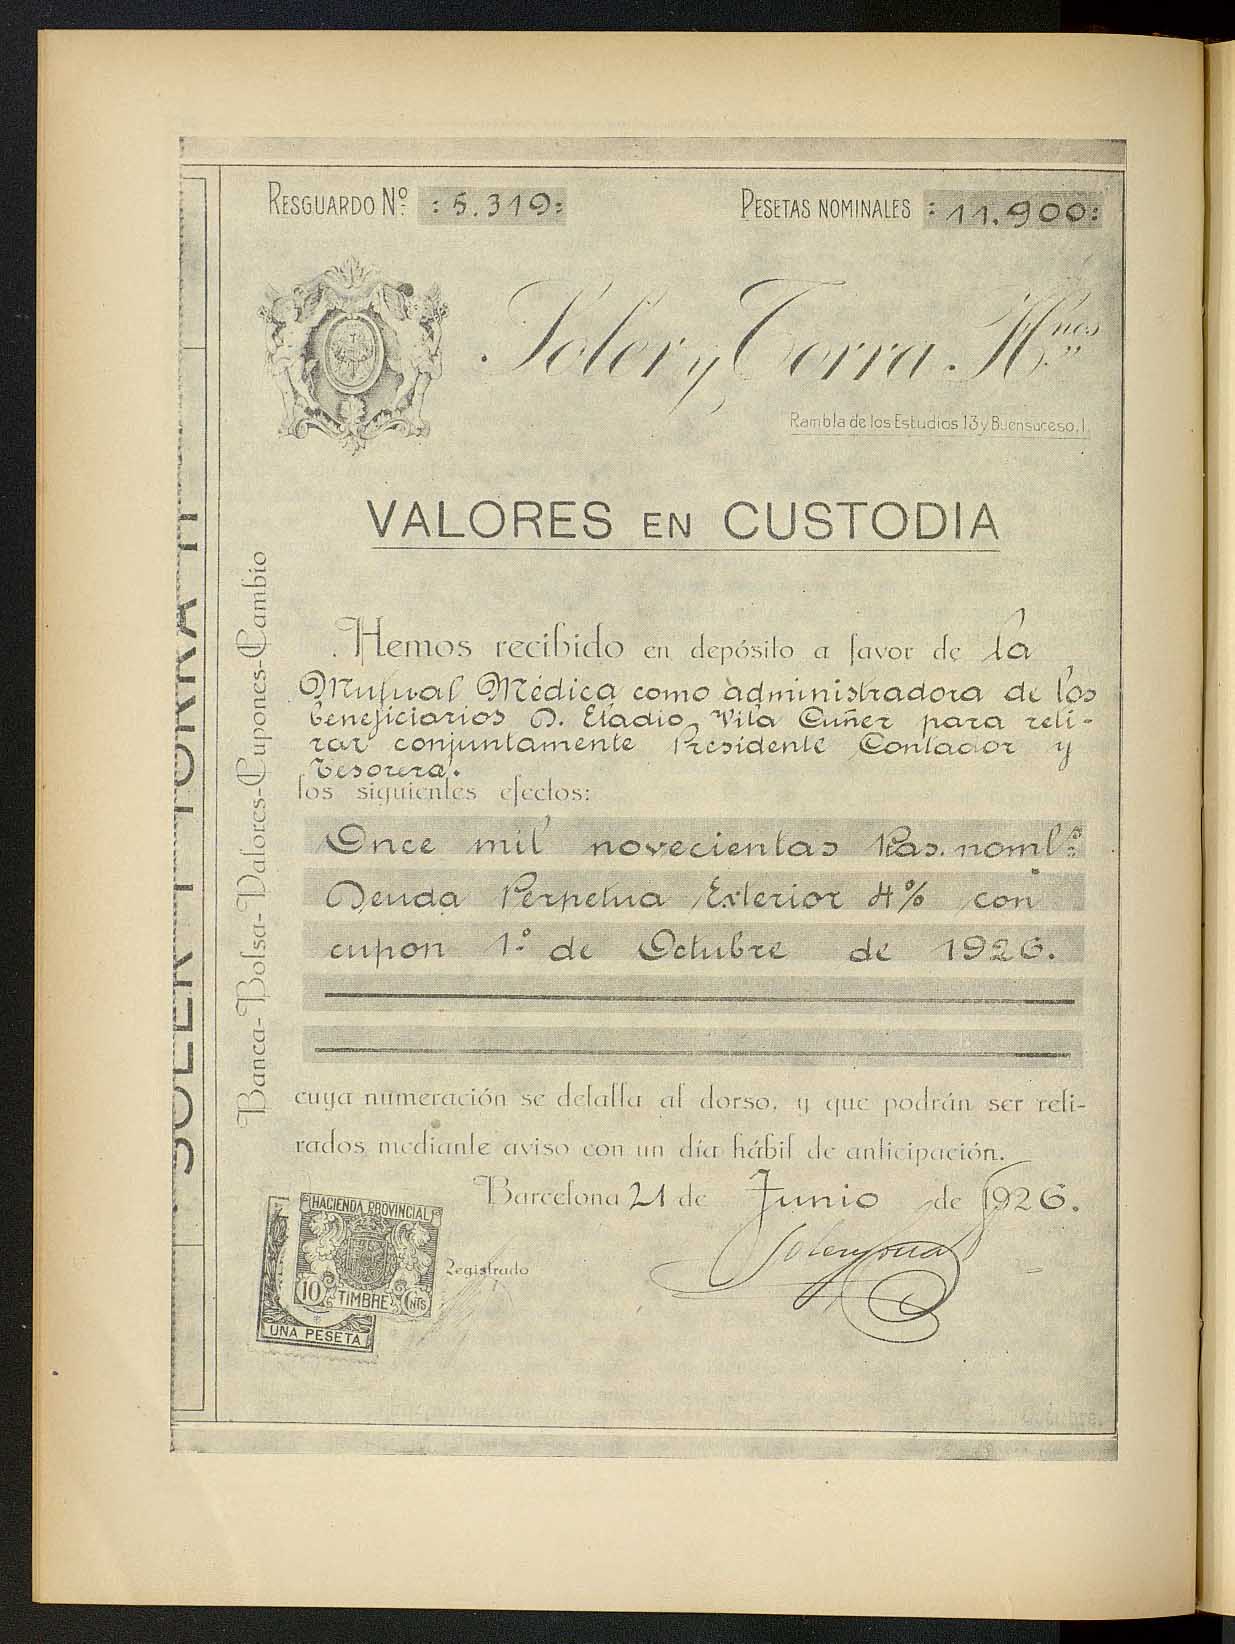 RESGUARDO Nº : 5.319:
PESETAS NOMINALES : 11.900:
Soler y Torra Hnos
Rambla de los Estudios 13 y Buensuceso, 1.
VALORES EN CUSTODIA
Hemos recibido en depósito a favor de la
Mutual Médica como administradora de los
beneficiarios D. Eladio Vila Cuñer para reti-
rar conjuntamente Presidente Contador y
Tesorera.
los siguientes efectos:
Once mil novecientas Ptas. nomls
Deuda Perpetua Exterior 4% con
cupon 1º de Octubre de 1926.
cuya numeración se detalla al dorso, y que podrán ser reti-
rados mediante aviso con un día hábil de anticipación.
Barcelona 21 de Junio de 1926.
Soler y Torra
Registrado
HACIENDA PROVINCIAL
10 TIMBRE CNTS
UNA PESETA
Banca-Bolsa-Valores-Cupones-Cambio
SOLER Y TORRA H